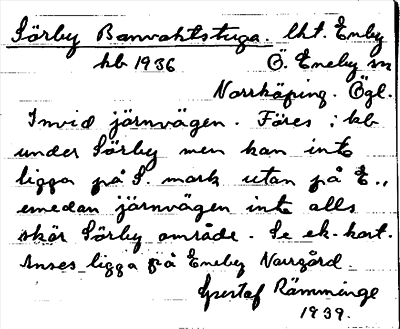 Sörby Banvaktstuga. lht. Eneby
kb 1936 Ö. Eneby sn
Norrköping. Ögl.
Invid järnvägen. Föres i kb
under Sörby men kan inte
ligga på S. mark utan på E.,
emedan järnvägen inte alls
skär Sörby område. Se ek. kart.
Anses ligga på Eneby Norrgård.
Gustaf Rämminge
1939.